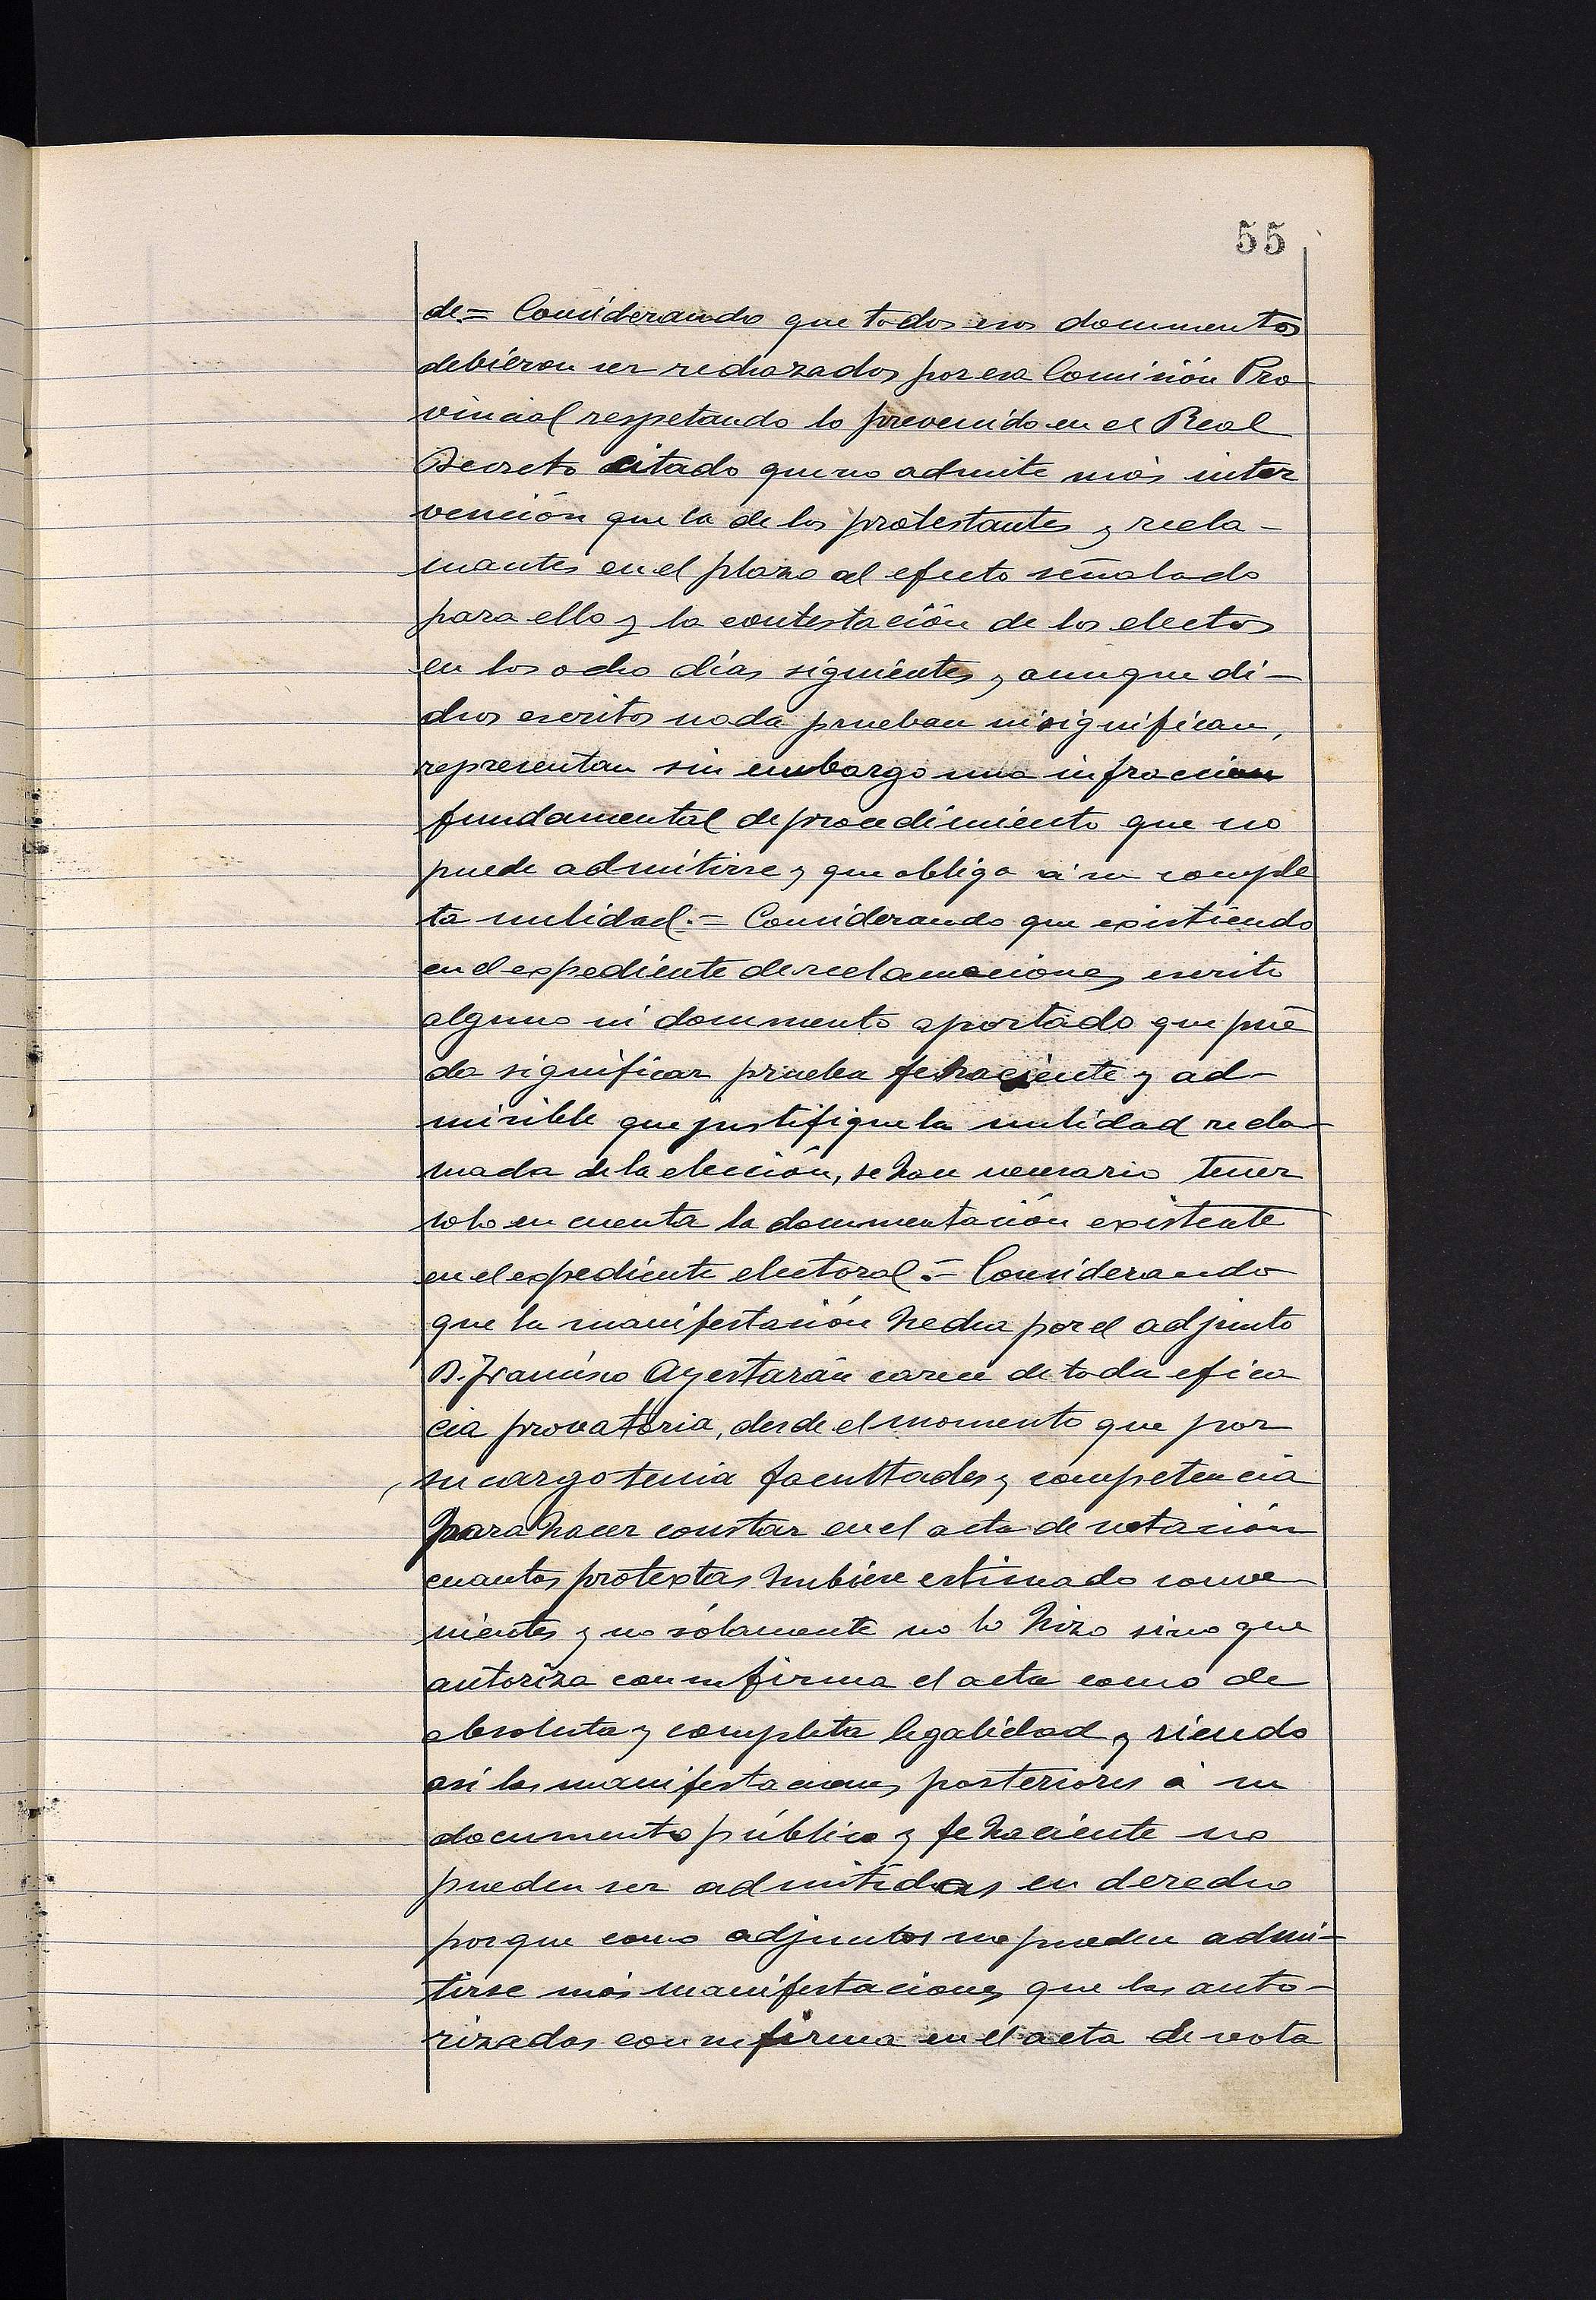 55
de.= Considerando que todos esos documentos
debieron ser rechazados por esa Comisión Pro
vincial respetando lo prevenido en el Real
Decreto citado que no admite más inter
vención que la de los protestantes y recla-
mantes en el plazo al efecto señalado
para ello y la contestación de los electos
en los ocho días siguientes y aunque di-
chos escritos nada prueban ni significan,
representan sin embargo una infraccion
fundamental de procedimiento que no
puede admitirse y que obliga á su comple
ta nulidad.= Considerando que existiendo
en el expediente de reclamaciones escrito
alguno ni documento aportado que pue
da significar prueba fehaciente y ad-
misible que justifique la nulidad recla-
mada de la elección, se hace necesario tener
solo en cuenta la documentación existente
en el expediente electoral.= Considerando
que la manifestación hecha por el adjunto
D. Francisco Ayestarán carece de toda efica
cia provatoria, desde el momento que por
su cargo tenia facultades y competencia
para hacer constar en el acta de votación
cuantas protextas hubiere estimado conve
nientes y no sólamente no lo hizo sino que
autoriza con su firma el acta como de
absoluta y completa legalidad y siendo
así las manifestaciones posteriores á su
documento público y fehaciente no
pueden ser admitidas en derecho
porque como adjuntos no pueden admi-
tirse más manifestaciones que las auto-
rizadas con su firma en el acta de vota